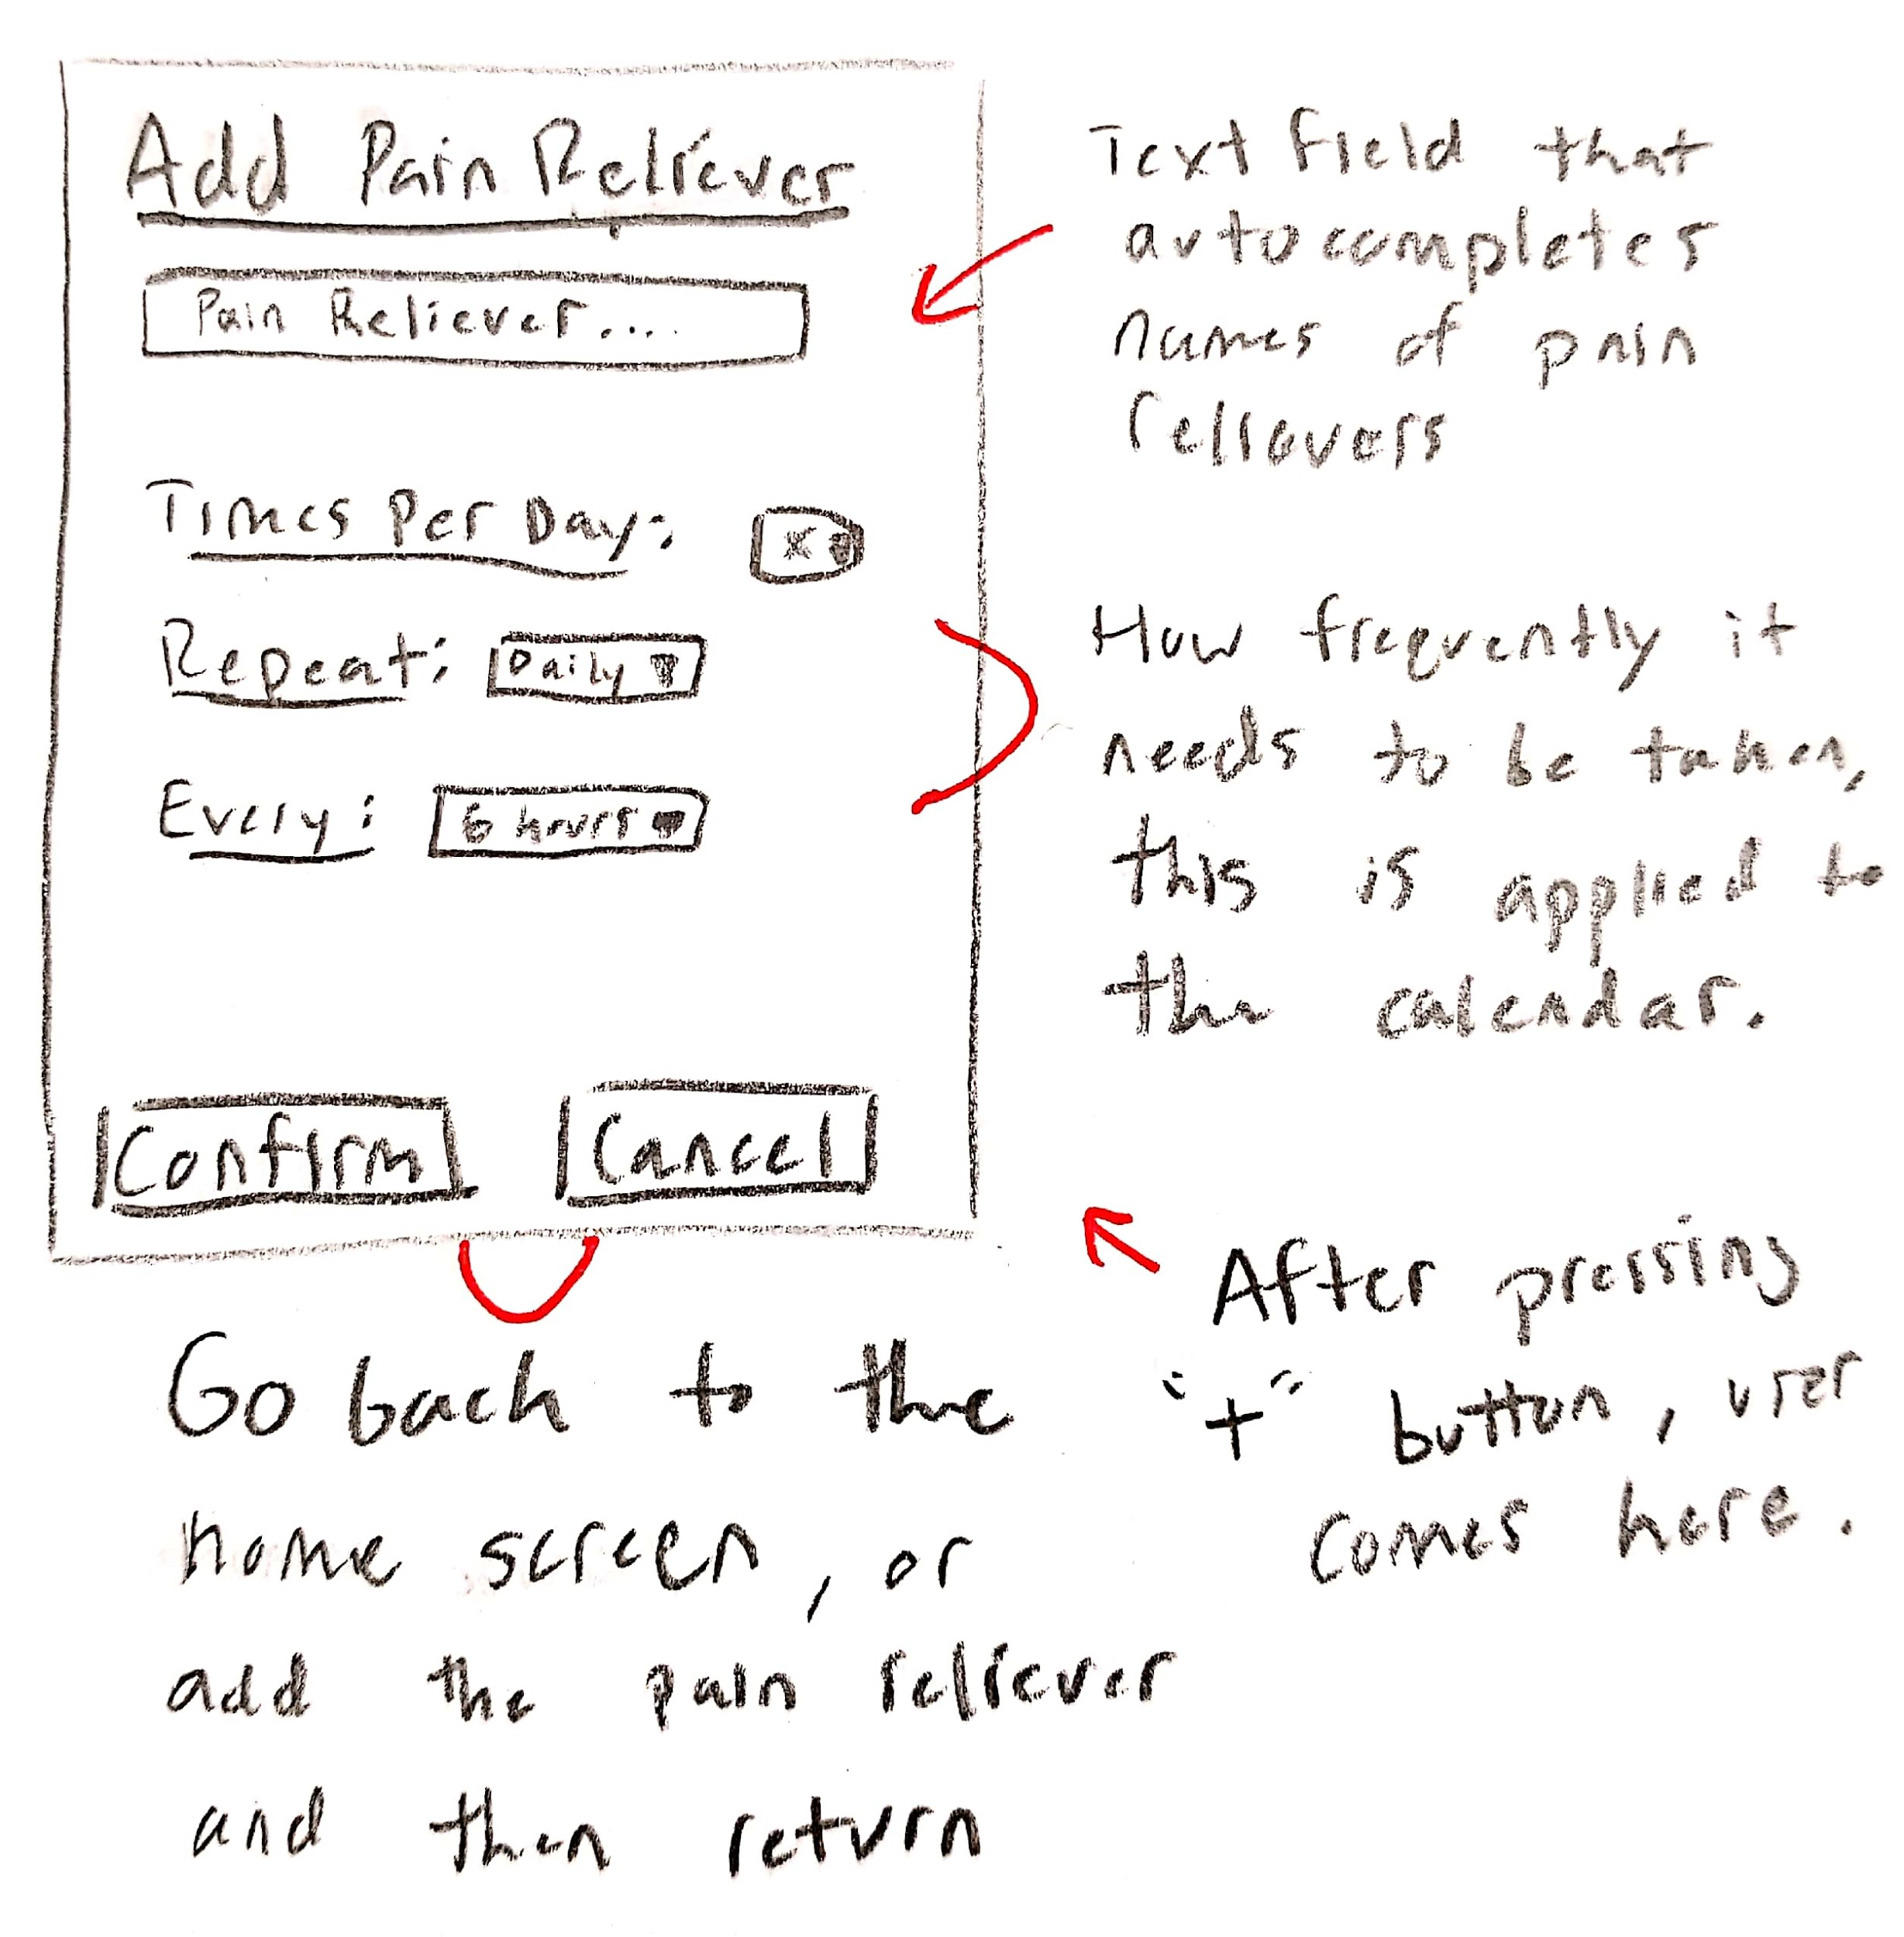 Add Pain Reliever
Pain Reliever....
Times Per Day: x
Repeat: Daily
Every: 6 hours
Confirm Cancel
Text field that
autocompletes
names of pain
relievers
How frequently it
needs to be taken,
this is applied to
the calendar.
After pressing
"+" button, user
comes here.
Go back to the
home screen, or
add the pain reliever
and then return